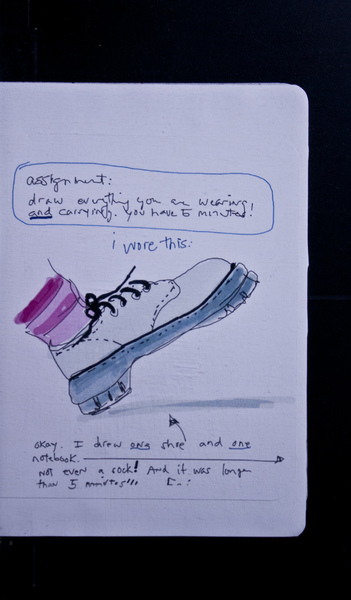 assignment:
draw everything you are wearing
and carrying. you have 5 minutes!
i wore this:
okay. I drew one shoe and one
notebook.
not even a sock! And it was longer
than 5 minutes!!!